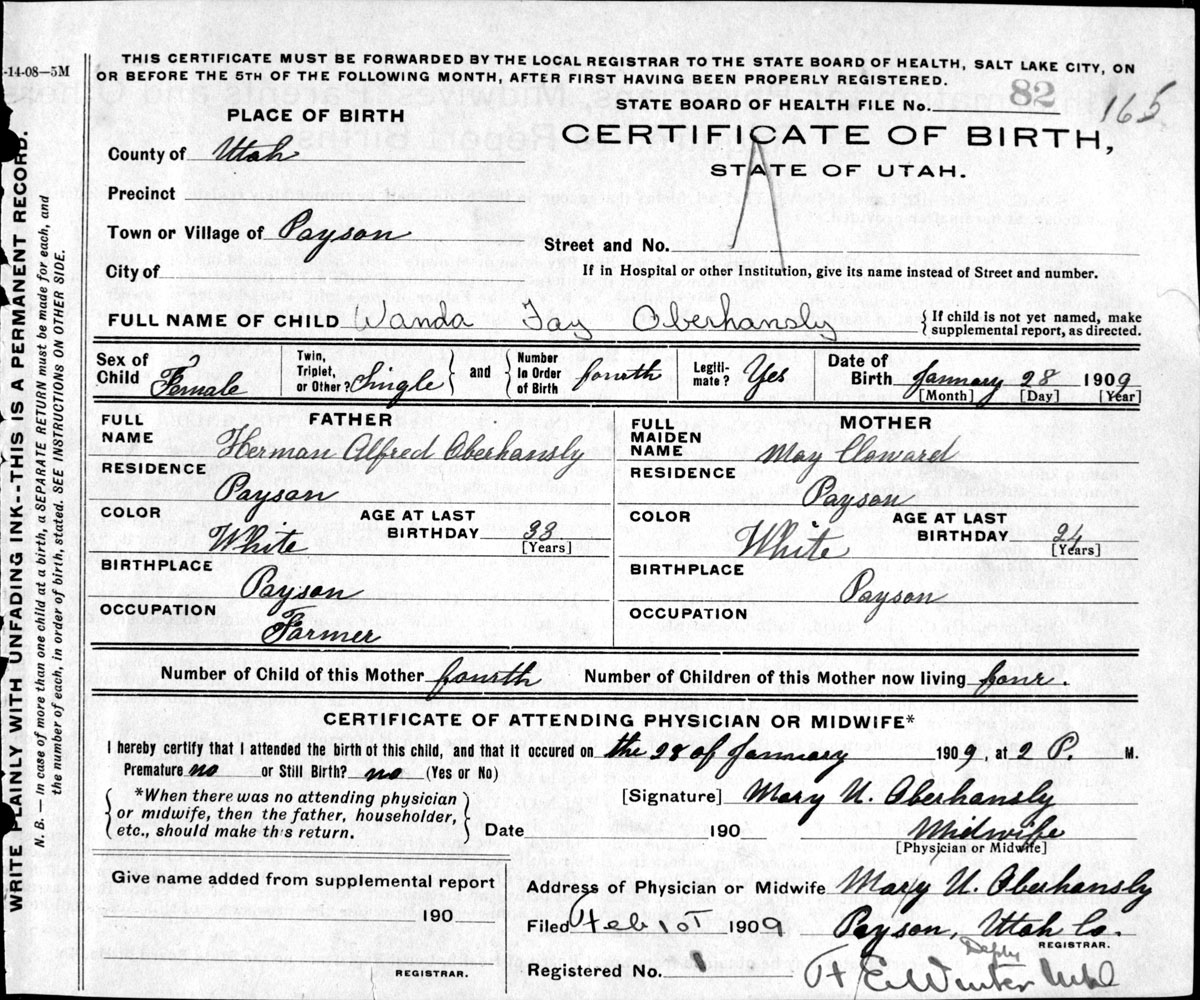 -14-08—5M
THIS CERTIFICATE MUST BE FORWARDED BY THE LOCAL REGISTRAR TO THE STATE BOARD OF HEALTH, SALT LAKE CITY, ON
OR BEFORE THE 5TH OF THE FOLLOWING MONTH, AFTER FIRST HAVING BEEN PROPERLY REGISTERED.
STATE BOARD OF HEALTH FILE No. 82 165
PLACE OF BIRTH
CERTIFICATE OF BIRTH,
STATE OF UTAH.
County of Utah
Precinct
Town or Village of Payson
Street and No.
City of
If in Hospital or other Institution, give its name instead of Street and number.
FULL NAME OF CHILD Wanda Fay Oberhansly
{ If child is not yet named, make
supplemental report, as directed.
Sex of Child Female
Twin, Triplet, or Other? Single } and { Number In Order of Birth fourth
Legiti-mate? Yes
Date of Birth January 28 1909
[Month] [Day] [Year]
FATHER
FULL NAME Herman Alfred Oberhansly
RESIDENCE
Payson
COLOR White
AGE AT LAST BIRTHDAY 33 [Years]
BIRTHPLACE
Payson
OCCUPATION
Farmer
MOTHER
FULL MAIDEN NAME May Cloward
RESIDENCE
Payson
COLOR White
AGE AT LAST BIRTHDAY 24 [Years]
BIRTHPLACE
Payson
OCCUPATION
Number of Child of this Mother fourth Number of Children of this Mother now living four.
CERTIFICATE OF ATTENDING PHYSICIAN OR MIDWIFE*
I hereby certify that I attended the birth of this child, and that it occured on the 28 of January 1909, at 2 P. M.
Premature no or Still Birth? no (Yes or No)
{ *When there was no attending physician
or midwife, then the father, householder,
etc., should make this return. }
[Signature] Mary U. Oberhansly
Date 190
Midwife
[Physician or Midwife]
Give name added from supplemental report
190
REGISTRAR.
Address of Physician or Midwife Mary U. Oberhansly
Filed Feb 1st 1909 Payson, Utah Co.
REGISTRAR.
Registered No. 1
Depty
E Winter
WRITE PLAINLY WITH UNFADING INK--THIS IS A PERMANENT RECORD.
N. B. — In case of more than one child at a birth, a SEPARATE RETURN must be made for each, and
the number of each, in order of birth, stated. SEE INSTRUCTIONS ON OTHER SIDE.